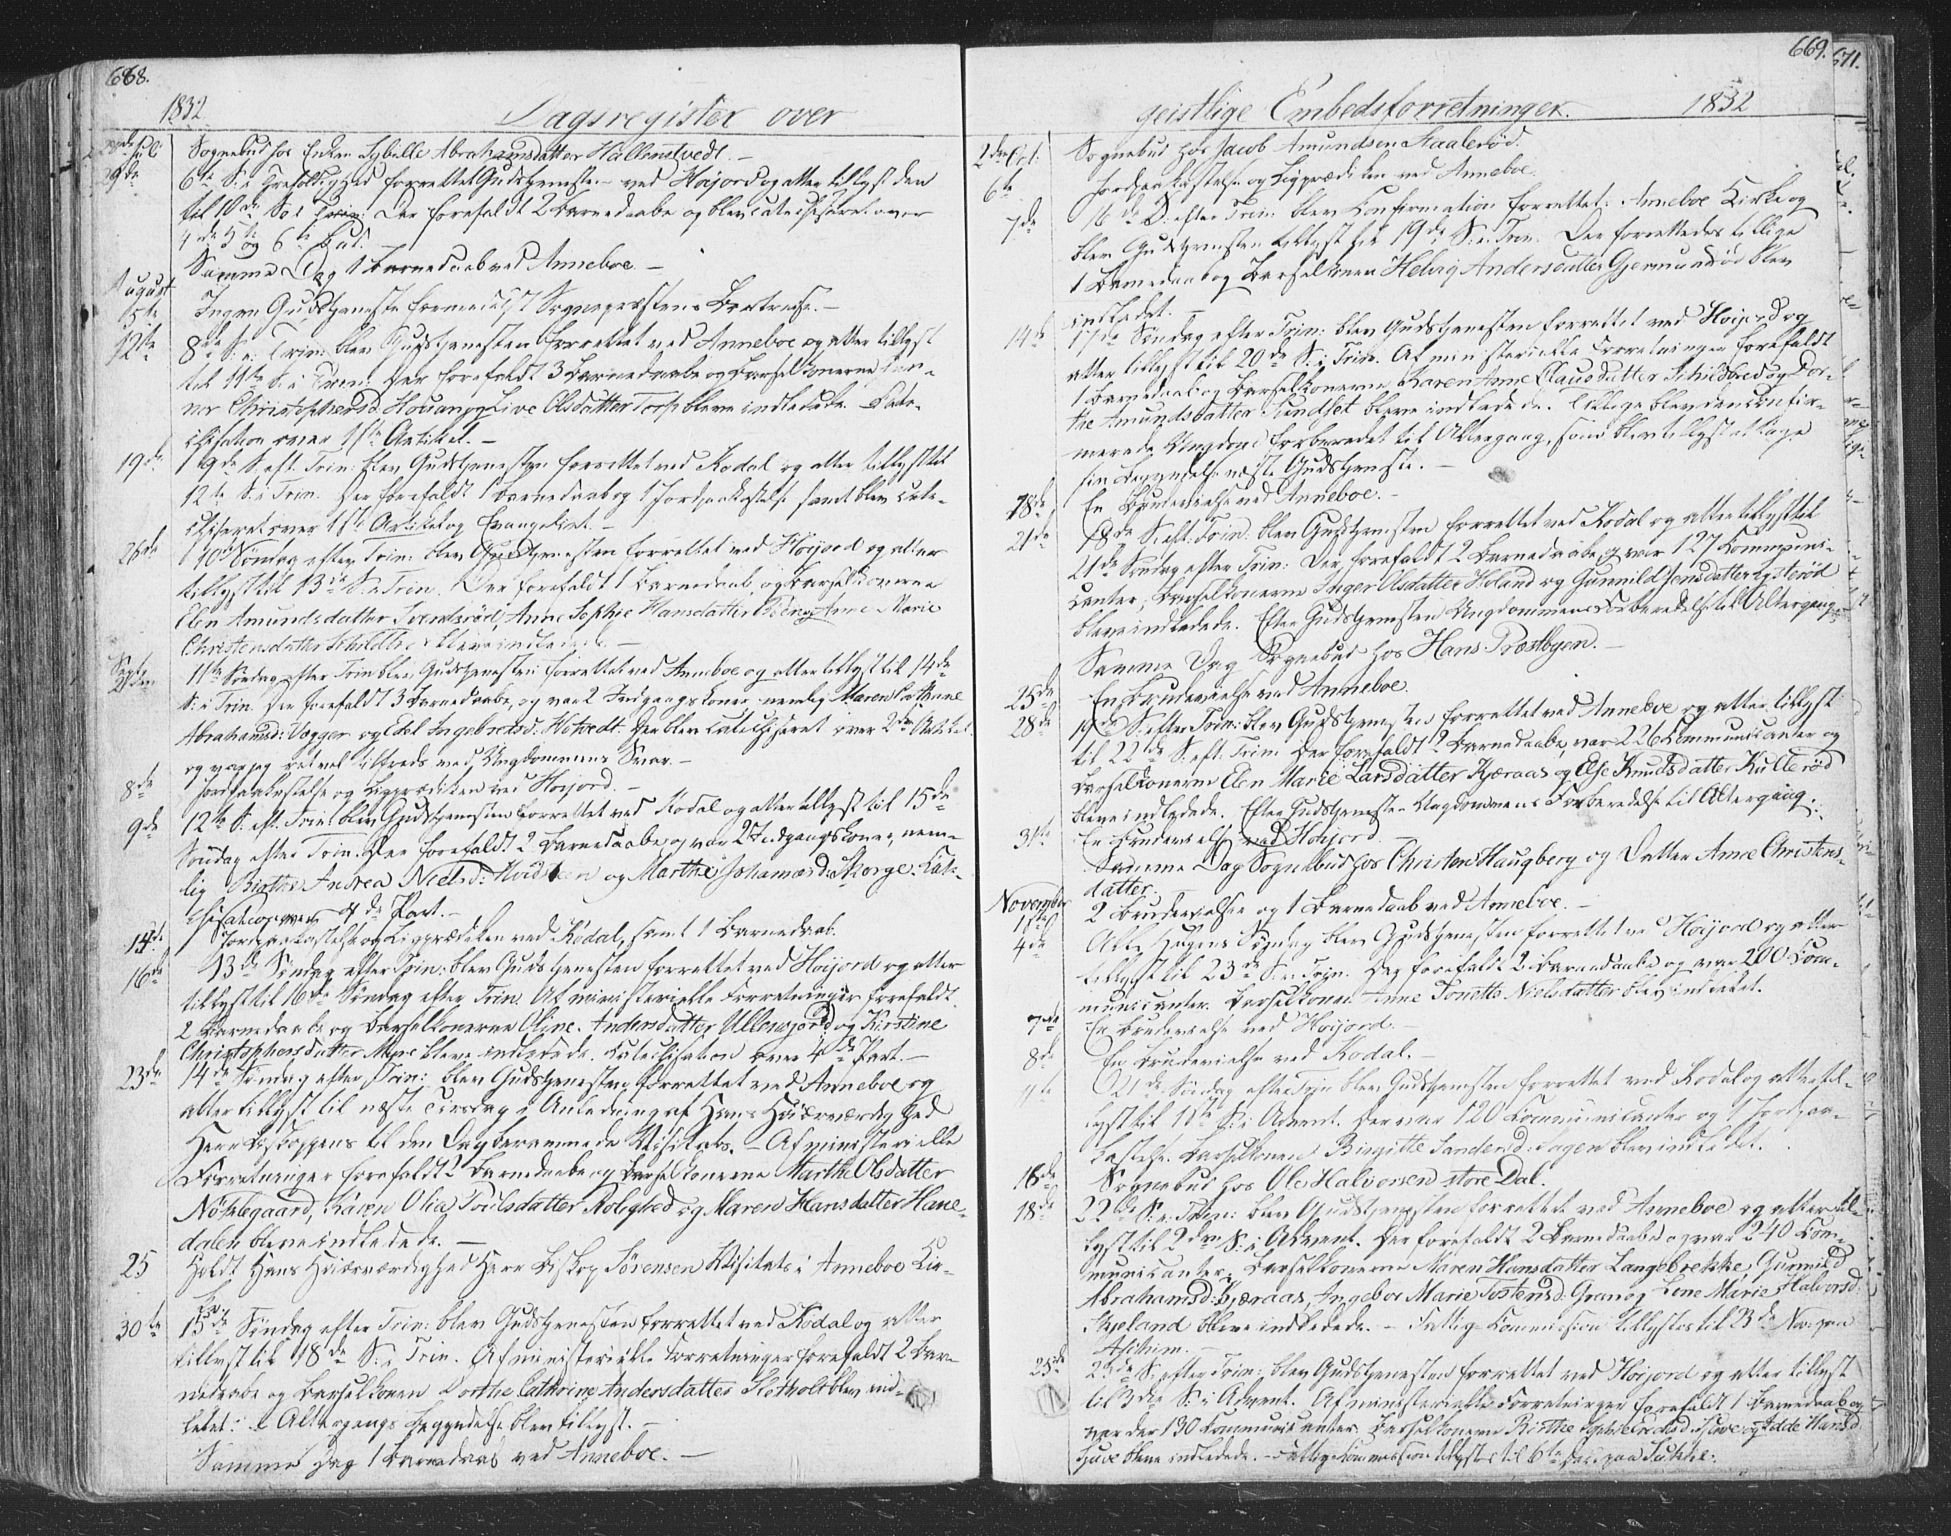 668.
1832
Dagsregister over
Jul.
Sognebud hos Enken Sybille Abrahamsdatter Hallenstvedt. —
29de
6te S. e. Trefoldighed forrettet Gudstjenesten ved Høijord og atter tillyst den
til 10de S. e. Trin: Der forefaldt 2 Barnedaabe og blev catechiseret over
4de 5te og 6te Bud.
Samme Dag 1 Barnedaab ved Anneboe. —
August
5te
Ingen Gudstjeneste formedelst Sognepræstens Bortreise. —
12te
8de S. e. Trin: blev Gudstjenesten forrettet ved Anneboe og atter tillyst
til 11te S. e. Trin: Der forefaldt 3 Barnedaabe og Barselkonerne
Christophersd. Houan og Live Olsdatter Torp bleve indledede. Cate-
chisation over 1ste Artikel. —
19de
9de S. eft. Trin: blev Gudstjenesten forrettet ved Kodal og atter tillyst til
12te S. e. Trin. Der forefaldt 1 Barnedaab og 1 Jordpaakastelse samt blev cate-
chiseret over 1ste Artikel og Evangeliet. —
26de
10de Søndag efter Trin: blev Gudstjenesten forrettet ved Høijord og atter
tillyst til 13de S. e. Trin. Der forefaldt 1 Barnedaab og Barselkonerne
Elen Amundsdatter Svendsrød, Anne Sophie Hansdatter og Anne Marie
Christensdatter bleve indledede. —
Sept.
2den
11te Søndag efter Trin blev Gudstjenesten forrettet ved Anneboe og atter tillyst til 14de
S. e. Trin. Der forefaldt 3 Barnedaabe, og var 2 Indgangskoner nemlig Maren Cathrine
Abrahamsd: Vegger og Edel Ingebretsd: Hotvedt. Der blev catechiseret over 2den Artikel
og var jeg ret vel tilfreds med Ungdommens Svar. —
8de
Jordpaakastelse og Ligprædiken ved Høijord. —
9de
12te S. eft. Trin blev Gudstjenesten forrettet ved Kodal og atter tillyst til 15de
Søndag efter Trin. Der forefaldt 2 Barnedaabe og var 2 Indgangskoner, nem-
lig Birthe Andrea Nielsd: Hvidsteen og Marthe Johannesd: Skorge. Cate-
chisation over 4de Part. —
14de
Jordpaakastelse og Ligprædiken ved Kodal, samt 1 Barnedaab.
16de
13de Søndag efter Trin: blev Gudstjenesten forrettet ved Høijord og atter
tillyst til 16de Søndag efter Trin. Af ministerielle Forretninger forefaldt
2 Barnedaabe og Barselkonerne Oline Andersdatter Ullensjord og Kirstine
Christophersdatter bleve indledede. Catechisation over 4de Part. —
23de
14de Søndag efter Trin: blev Gudstjenesten forrettet ved Anneboe og
atter tillyst til næste Tirsdag i Anledning af Hans Høiærværdighed
Herr Biskoppens til den Dag berammede Visitats. — Af ministerielle
Forretninger forefaldt 2 Barnedaabe og Barselkonerne Marthe Olsdatter
Nøklegaard, Karen Olia Poulsdatter Rolighed og Maren Hansdatter Hane-
dalen bleve indledede. —
25
Holdt Hans Høiærværdighed Herr Biskop Sørensen Visitats i Anneboe Kir-
30te
15de Søndag efter Trin: blev Gudstjenesten forrettet ved Kodal og atter
tillyst til 18de S. e. Trin. Af ministerielle Forretninger forefaldt 2 Bar-
nedaabe og Barselkonen Dorthe Cathrine Andersdatter Slotholt blev ind-
ledet. Altergangs Begyndelse blev tillyst. —
Samme Dag 1 Barnedaab ved Anneboe. —
669.
671.
geistlige Embedsforretninger.
1832
2den Oct.
Sognebud hos Jacob Amundsen Haalerød.
6te
Jordpaakastelse og Ligprædiken ved Anneboe.
7de
16de S. efter Trin: blev Confirmation forrettet i Anneboe Kirke og
blev Gudstjenesten tillyst til 19de S. e. Trin. Der forrettedes tillige
1 Barnedaab og Barselkonen Helvig Andersdatter Gjermundrød blev
indledet. —
14de
17de Søndag efter Trin: blev Gudstjenesten forrettet ved Høijord og
atter tillyst til 20de S. e. Trin. Af ministerielle Forretninger forefaldt
1 Barnedaab og Barselkonerne Karen Anne Clausdatter Schildbred og Dor-
the Amundsdatter Sundset bleve indledede. Tillige blev den confir-
merede Ungdom forberedet til Altergang, som blev tillyst at tage
sin Begyndelse næste Gudstjeneste. —
18de
En Brudevielse ved Anneboe. —
21de
18de S. eft. Trin: blev Gudstjenesten forrettet ved Kodal og atter tillyst til
21de Søndag efter Trin: Der forefaldt 2 Barnedaabe og var 127 Communi-
canter, Barselkonerne Inger Olsdatter Holand og Gunnild Jensdatter
bleve indledede. Efter Gudstjenesten Ungdommens Forberedelse til Altergang.
Samme Dag Sognebud hos Hans Præstbyen. —
25de
En Brudevielse ved Anneboe.
28de
19de S. efter Trin: blev Gudstjenesten forrettet ved Anneboe og atter tillyst
til 22de S. eft. Trin: Der forefaldt 2 Barnedaabe, var 226 Communicanter og
Barselkonerne Elen Marie Larsdatter Kjæraas og Else Knudsdatter Kullerød
bleve indledede. Efter Gudstjenesten Ungdommens Forberedelse til Altergang.
31te
En Brudevielse ved Høijord
Samme Dag Sognebud hos Christen Haugberg og Datter Anne Christens-
datter. —
November
1ste
2 Brudevielser og 1 Barnedaab ved Anneboe. —
4de
Alle Helgens Søndag blev Gudstjenesten forrettet ved Høijord og atter
tillyst til 23de S. e. Trin. Der forefaldt 2 Barnedaabe og var 200 Com-
municanter. Barselkonen Anne Tonette Nielsdatter blev indledet.
7de
En Brudevielse ved Høijord. —
8de
En Brudevielse ved Kodal. —
11te
21de Søndag efter Trin blev Gudstjenesten forrettet ved Kodal og atter til-
lyst til 1ste S. i Advent. Der var 120 Communicanter og 1 Jordpaa-
kastelse. Barselkonen Birgitte Sandersd: blev indledet.
16de
Sognebud hos Ole Halvorsen store Dal.
18de
22de S. e. Trin: blev Gudstjenesten forrettet ved Anneboe og atter til-
lyst til 2den S. i Advent. Der forefaldt 2 Barnedaabe og var 240 Com-
municanter. Barselkonerne Maren Hansdatter Langebrekke, Gunnild
Abrahamsd: Kjæraas, Ingebor Marie Tostensd: Gran og Lene Marie Halvorsd:
Skjeland bleve indledede. — Fattig-Commission tillystes til 23de Nov: paa
Aschim. —
25de
23de S. efter Trin: blev Gudstjenesten forrettet ved Høijord og atter tillyst
til 3de S. i Advent. Af ministerielle Forretninger forefaldt 1 Barnedaab og
var der 130 Communicanter. Barselkonerne Birthe Sophie og Edde Hansd.
Huve bleve indledede. — Fattigkommission tillystes til 6te Dec. paa